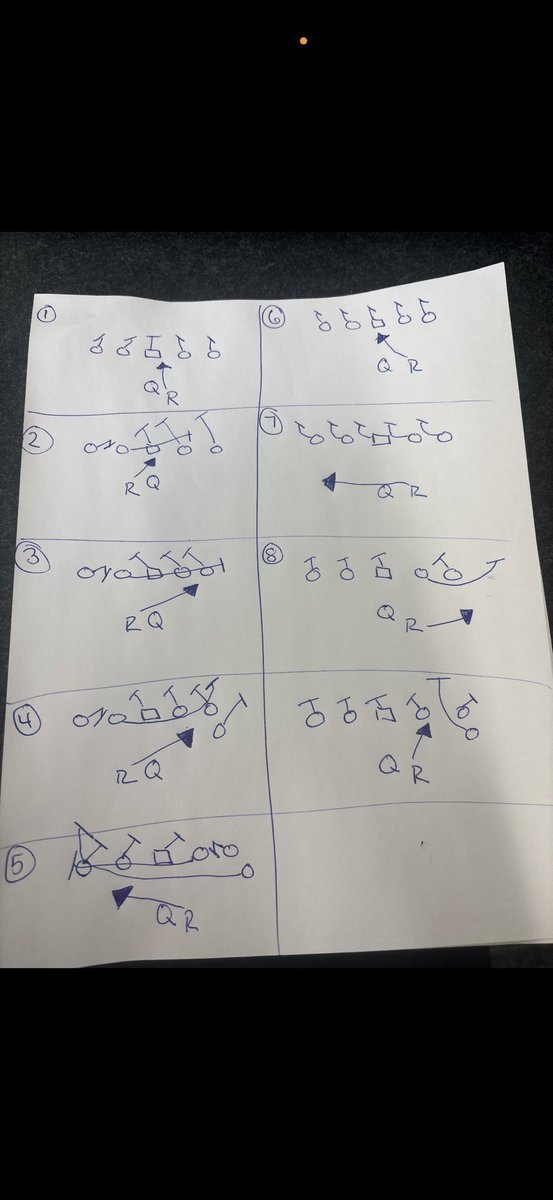 1
Q R
2
R Q
3
R Q
4
R Q
5
Q R
6
Q R
7
Q R
8
Q R
Q R